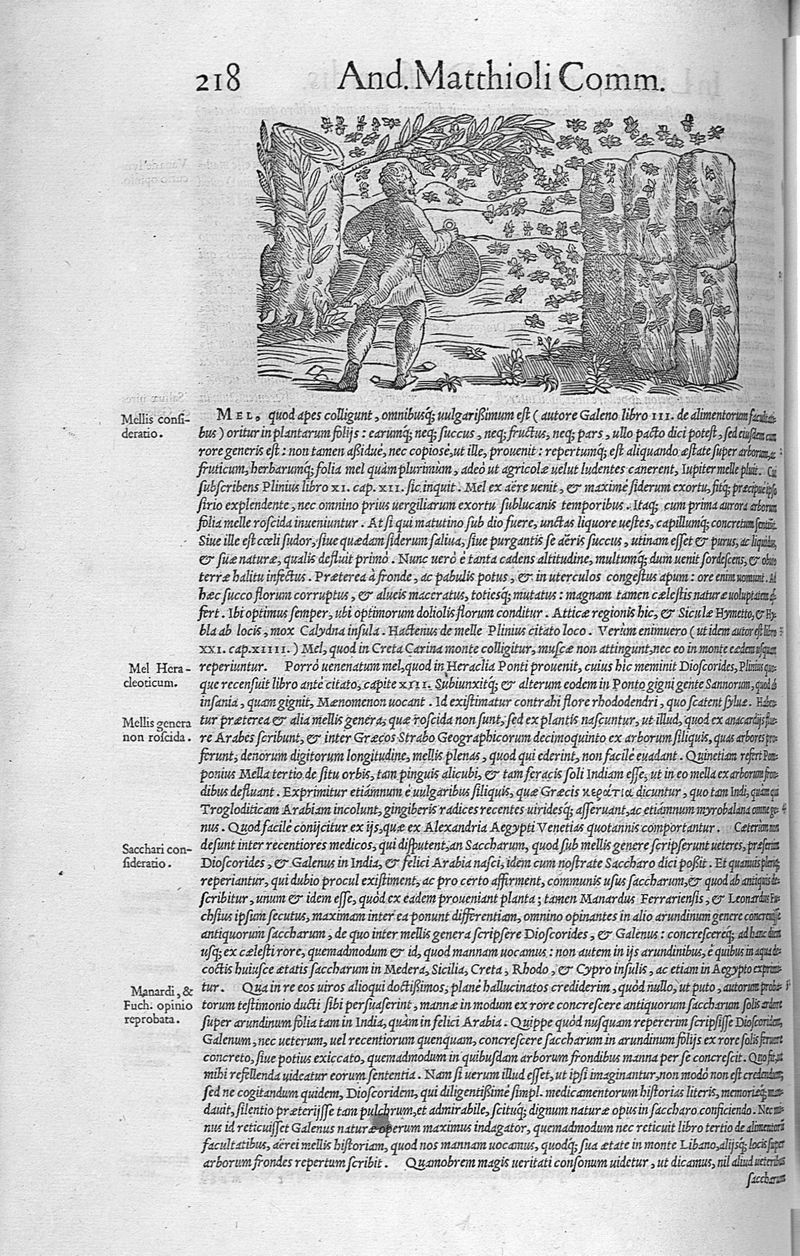 218 And. Matthioli Comm.
Mellis consi-
deratio.
MEL, quod apes colligunt, omnibusq; uulgarißimum est (autore Galeno libro III. de alimentorum
bus) oritur in plantarum folijs: earumq; neq; succus, neq; fructus, neq; pars, ullo pacto dici potest, sed eiusdem cum
rore generis est: non tamen aßiduè, nec copiosè, ut ille, prouenit: repertumq; est aliquando æstate super arborum, &
fruticum, herbarumq; folia mel quàm plurimùm, adeò ut agricolæ uelut ludentes canerent, Iupiter melle pluit. Cui
subscribens Plinius libro XI. cap. XII. sic inquit. Mel ex aëre uenit, & maximè siderum exortu, sitq; præcipuè ipso
sirio explendente, nec omnino prius uergiliarum exortu sublucanis temporibus. Itaq; cum prima aurora arborum
folia melle roscida inueniuntur. At si qui matutino sub dio fuere, unctas liquore uestes, capillumq; concretum
Siue ille est cœli sudor, siue quædam siderum saliua, siue purgantis se aëris succus, utinam esset & purus, ac liquidus,
& suæ naturæ, qualis defluit primò. Nunc uerò è tanta cadens altitudine, multumq; dum uenit sordescens, & obuio
terræ halitu infectus. Præterea à fronde, ac pabulis potus, & in uterculos congestus apum: ore enim uomunt. Ad
hæc succo florum corruptus, & alueis maceratus, totiesq; mutatus: magnam tamen cælestis naturæ uoluptatem
fert. Ibi optimus semper, ubi optimorum doliolis florum conditur. Atticæ regionis hic, & Siculæ Hymetto, & Hy-
bla ab locis, mox Calydna insula. Hactenus de melle Plinius citato loco. Verùm enimuero (ut idem autor est libro
XXI. cap. XIIII.) Mel, quod in Creta Carina monte colligitur, muscæ non attingunt, nec eo in monte eædem usquam
Mel Hera-
cleoticum.
reperiuntur. Porrò uenenatum mel, quod in Heraclia Ponti prouenit, cuius hic meminit Dioscorides, Plinius quo-
que recensuit libro antè citato, capite XIII. Subiunxitq; & alterum eodem in Ponto gigni gente Sannorum, quod ab
insania, quam gignit, Mænomenon uocant. Id existimatur contrahi flore rhododendri, quo scatent syluæ. Haben-
Mellis genera
non roscida.
tur præterea & alia mellis genera, quæ roscida non sunt, sed ex plantis nascuntur, ut illud, quod ex anacardijs flue-
re Arabes scribunt, & inter Græcos Strabo Geographicorum decimoquinto ex arborum siliquis, quas arbores pro-
ferunt, denorum digitorum longitudine, mellis plenas, quod qui ederint, non facilè euadant. Quinetiam refert Pom-
ponius Mella tertio de situ orbis, tam pinguis alicubi, & tam feracis soli Indiam esse, ut in eo mella ex arborum fron-
dibus defluant. Exprimitur etiamnum è uulgaribus siliquis, quæ Græcis κεράτια dicuntur, quo tam Indi, quàm qui
Trogloditicam Arabiam incolunt, gingiberis radices recentes uiridesq; asseruant, ac etiamnum myrobalana omne ge-
nus. Quod facilè conijcitur ex ijs, quæ ex Alexandria Aegypti Venetias quotannis comportantur. Cæterùm non
Sacchari con-
sideratio.
desunt inter recentiores medicos, qui disputent, an Saccharum, quod sub mellis genere scripserunt ueteres, præsertim
Dioscorides, & Galenus in India, & felici Arabia nasci, idem cum nostrate Saccharo dici poßit. Et quamuis pleriq;
reperiantur, qui dubio procul existiment, ac pro certo affirment, communis usus saccharum, & quod ab antiquis de-
scribitur, unum & idem esse, quòd ex eadem proueniant planta; tamen Manardus Ferrariensis, & Leonardus Fu-
chsius ipsum secutus, maximam inter ea ponunt differentiam, omnino opinantes in alio arundinum genere concreuisse
antiquorum saccharum, de quo inter mellis genera scripsere Dioscorides, & Galenus: concrescereq; ad hanc diem
usq; ex cælesti rore, quemadmodum & id, quod mannam uocamus: non autem in ijs arundinibus, è quibus in aqua de-
coctis huiusce ætatis saccharum in Medera, Sicilia, Creta, Rhodo, & Cypro insulis, ac etiam in Aegypto exprimi-
Manardi, &
Fuch. opinio
reprobata.
tur. Qua in re eos uiros alioqui doctißimos, planè hallucinatos crediderim, quòd nullo, ut puto, autorum proba-
torum testimonio ducti sibi persuaserint, mannæ in modum ex rore concrescere antiquorum saccharum solis ardore
super arundinum folia tam in India, quàm in felici Arabia. Quippe quòd nusquam repererim scripsisse Dioscoridem,
Galenum, nec ueterum, uel recentiorum quenquam, concrescere saccharum in arundinum folijs ex rore solis feruore
concreto, siue potius exiccato, quemadmodum in quibusdam arborum frondibus manna per se concrescit. Quo fit, ut
mihi refellenda uideatur eorum sententia. Nam si uerum illud esset, ut ipsi imaginantur, non modò non est credendum,
sed ne cogitandum quidem, Dioscoridem, qui diligentißimè simpl. medicamentorum historias literis, memoriæq; man-
dauit, silentio præterijsse tam pulchrum, et admirabile, scituq; dignum naturæ opus in saccharo conficiendo. Nec mi-
nus id reticuisset Galenus naturæ operum maximus indagator, quemadmodum nec reticuit libro tertio de alimentorum
facultatibus, aërei mellis historiam, quod nos mannam uocamus, quodq; sua ætate in monte Libano, alijsq; locis super
arborum frondes repertum scribit. Quamobrem magis ueritati consonum uidetur, ut dicamus, nil aliud ueteribus
saccharum